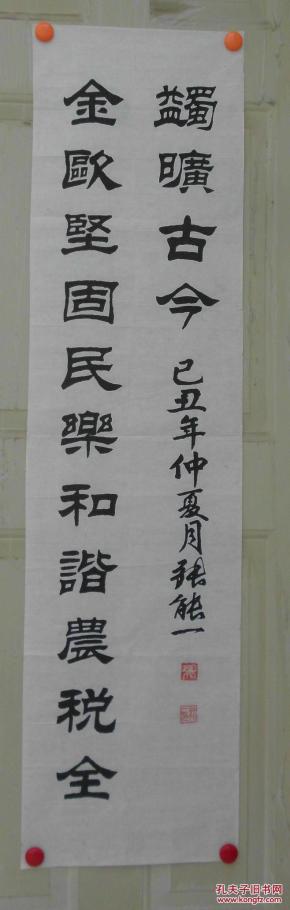 金歐堅固民樂和諧農税全
蠲曠古今 己丑年仲夏月張能一
孔夫子旧书网
www.kongfz.com